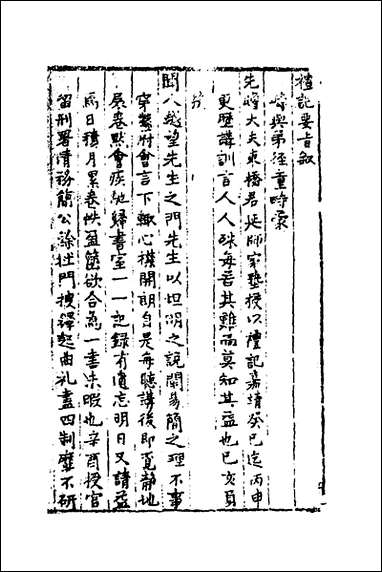 禮記要旨敘
嶹與弟徑童時蒙
先嶂大夫東橋君延師家塾授以禮記嘉靖癸巳迄丙申
更歷講訓言人人殊每苦其難而莫知其益也己亥負
笈
聞人越望先生之門先生以坦明之說闡易簡之理不事
穿鑿附會言下輒心機開朗自是每聽講後即覓靜地
展卷點會疾馳歸書室一一記錄有遺忘明日又請益
焉日積月累卷帙盈篋欲合為一書未暇也辛酉授官
留刑署情務簡公餘杜門搜繹起曲礼盡四制靡不研